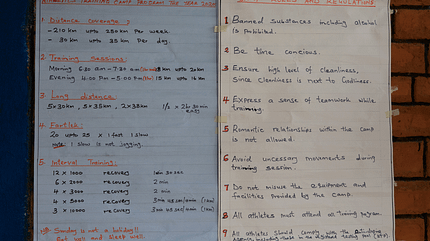 TRAINING CAMP PROGRAM THE YEAR
1 Distance coverage:
- 210 km upto 250 km Per week.
- 30 km upto 35 km Per day.
2 Training Sessions:
Morning 6:30 a.m - 7:30 a.m 15 km upto 20 km
Evening 4:00 P.m - 5:00 P.m 15 km upto 16 km
3 Long distance
5x30km, 5x35km, 2x38km 1/s x 2h 30 min
4 Fartlek:
20 upto 25 x 1 fast 1 slow
Note: 1 slow is not jogging.
5 Interval Training:
12 x 1000 recovery
6 x 2000 recovery 2 min
4 x 3000 recovery 2 min
5 x 5000 recovery
3 x 10000 recovery
Sunday is not a holiday!
Eat well and sleep well.
AND REGULATIONS
1 Banned substances including alcohol
is Prohibited.
2 Be time concious.
3 Ensure high level of cleanliness,
Since Cleanliness is next to Godliness.
4 Express a sense of teamwork while
training.
5 Romantic relationships within the Camp
is not allowed.
6 Avoid unecessary movements during
training session.
7 Do not misuse the equipment and
facilities provided by the Camp.
8 All athletes must attend all Training program.
9 All athletes should comply with the